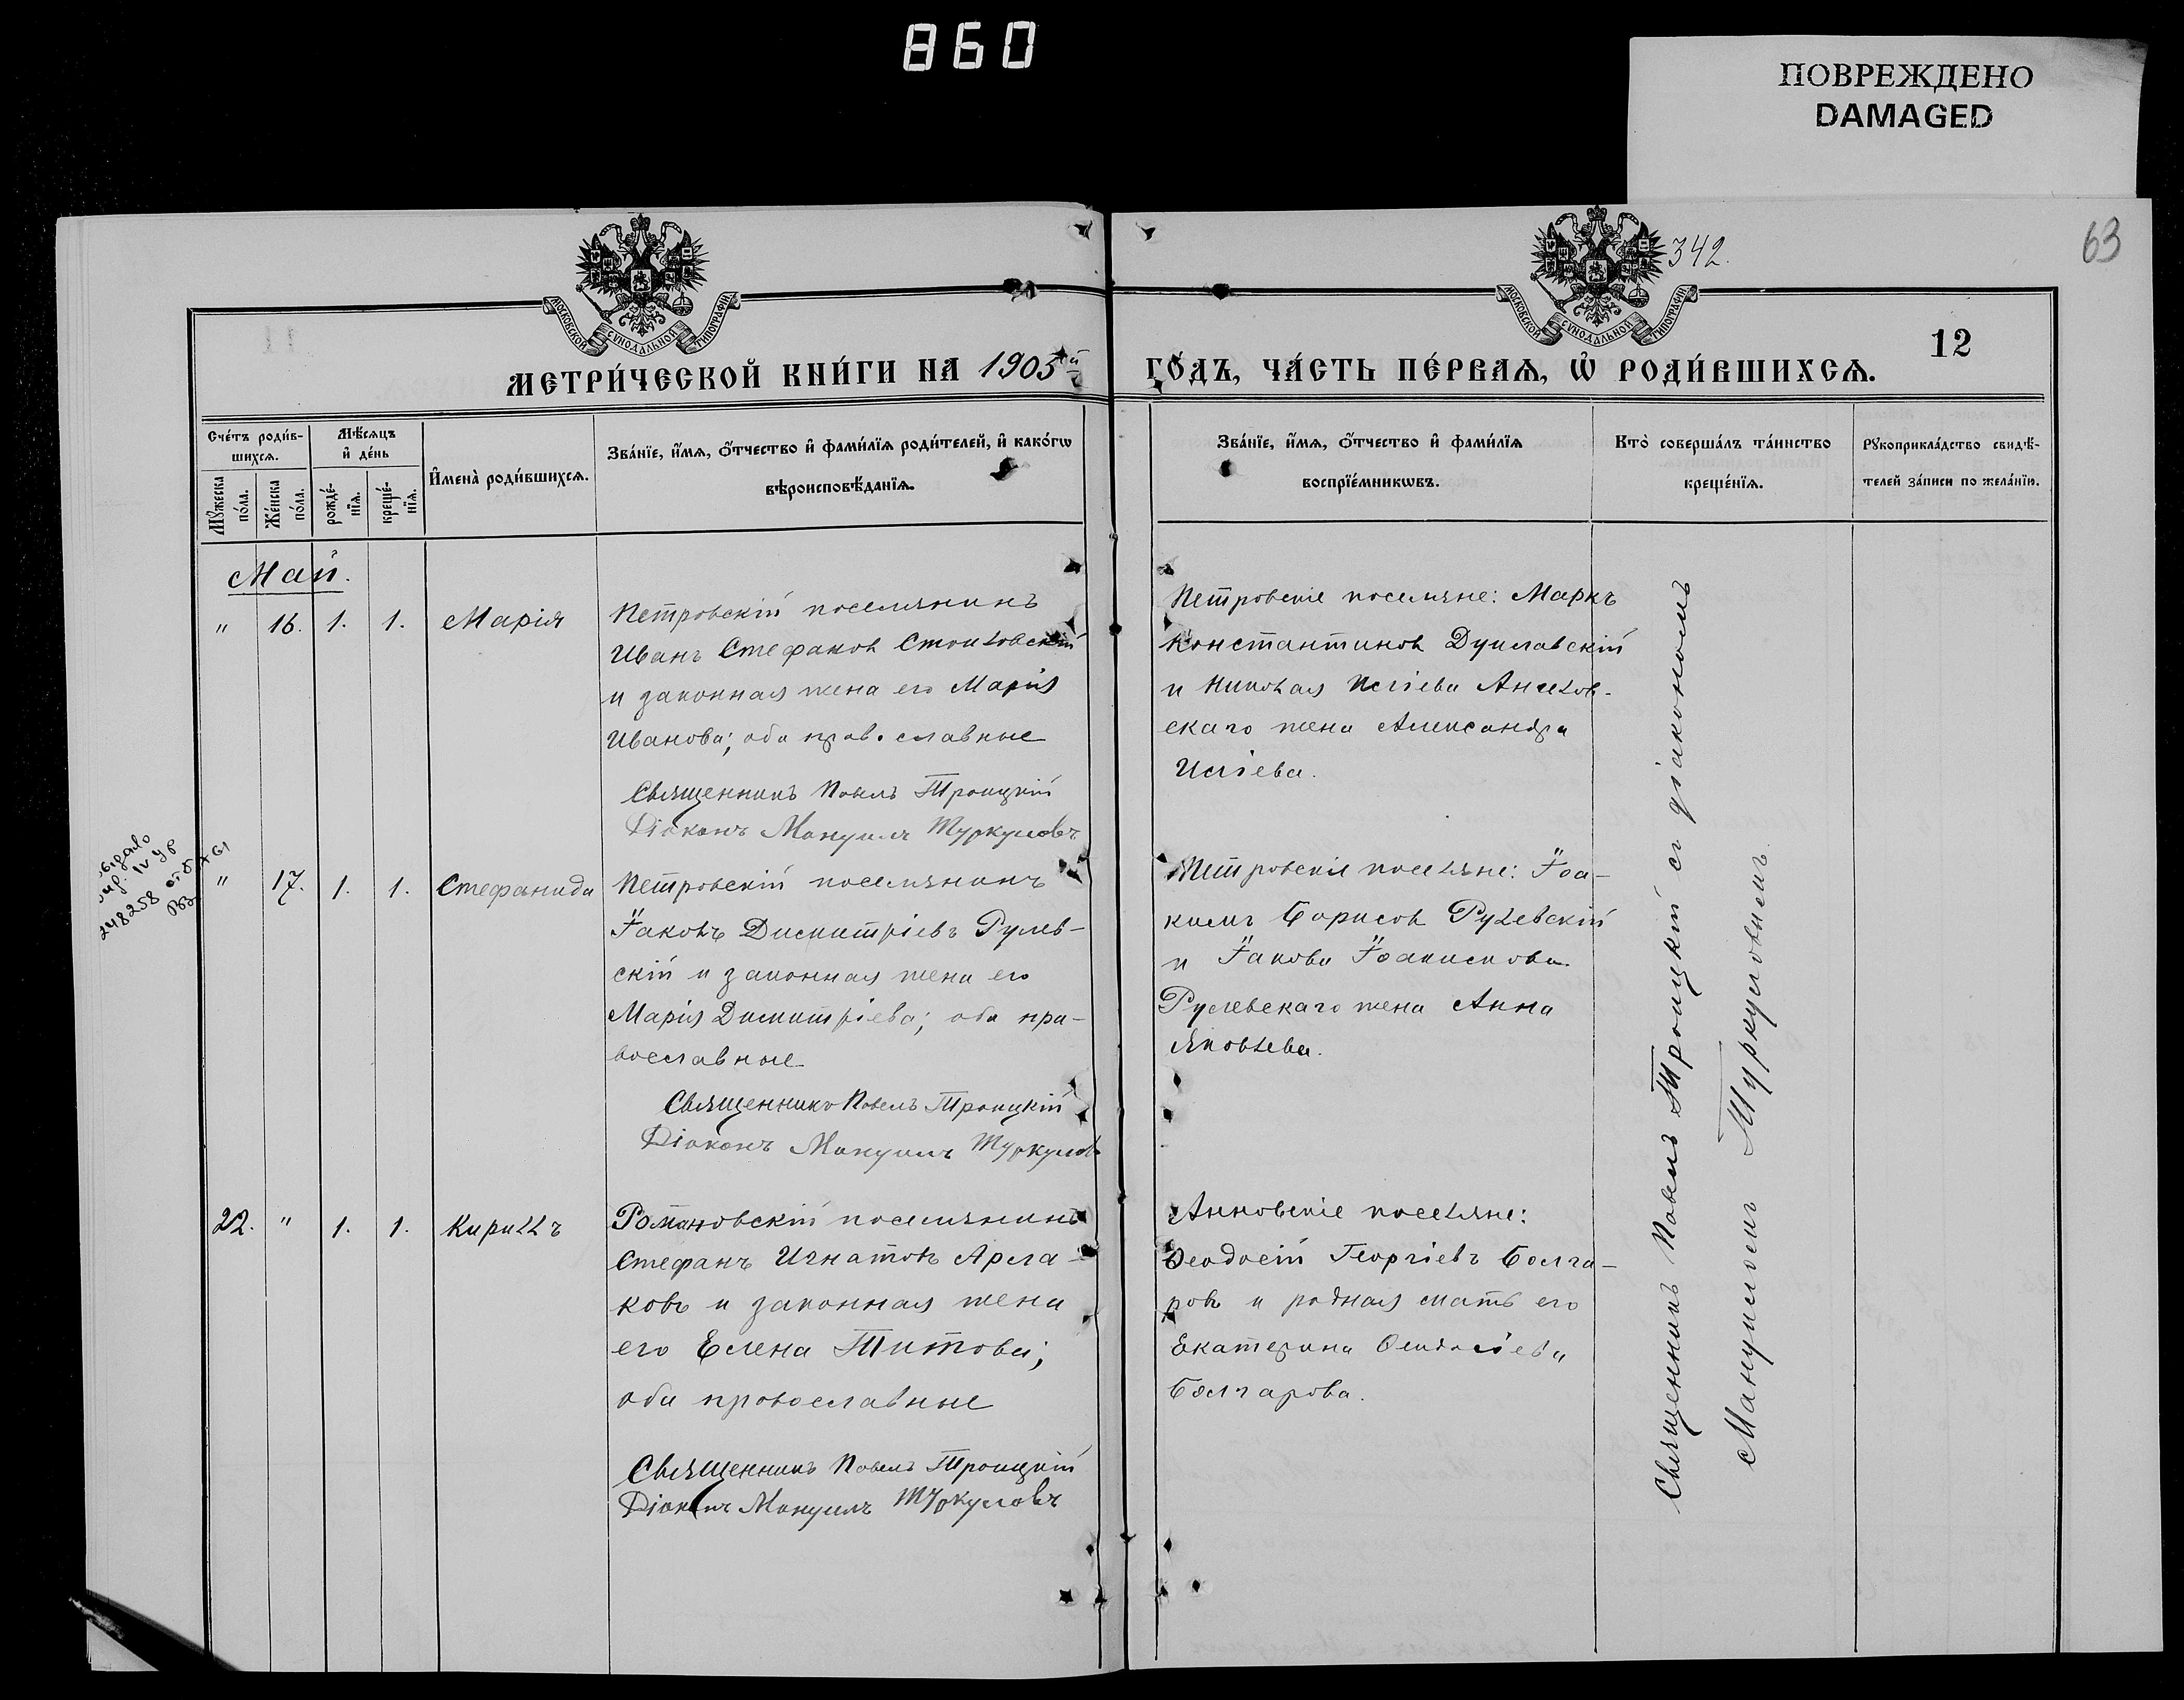 860
ПОВРЕЖДЕНО
DAMAGED
342.
63
12
МОСКОВСКОЙ СѴНОДАЛЬНОЙ ТИПОГРАФІИ
МОСКОВСКОЙ СѴНОДАЛЬНОЙ ТИПОГРАФІИ
МЕТРИ́ЧЕСКОЙ КНИ́ГИ НА 1905й
ГО́ДЪ, ЧА́СТЬ ПЕ́РВАѦ, Ѡ҆ РОДИ́ВШИХСѦ.
Сче́тъ роди́в-
шихсѧ.
Мꙋ́жеска по́ла.
Же́нска по́ла.
Мѣ́сѧцъ
и҆ де́нь
рожде́-
нїѧ.
креще́-
нїѧ.
И҆мена̀ роди́вшихсѧ.
Зва́нїе, и҆́мѧ, ѻ҆́тчество и҆ фами́лїѧ роди́телей, и҆ како́гѡ
вѣроисповѣ́данїѧ.
Зва́нїе, и҆́мѧ, ѻ҆́тчество и҆ фами́лїѧ
воспрїе́мникѡвъ.
Кто̀ соверша́лъ та́инство
креще́нїѧ.
Рꙋкоприкла́дство свидѣ́-
телей за́писи по жела́нїю.
Май.
" 16. 1. 1. Марія
Петровскій поселянинъ
Иванъ Стефановъ Стоиловскій
и законная жена его Марія
Иванова; оба православные
Священникъ Павелъ Троицкій
Діаконъ Мануилъ Туркуловъ
Петровскіе поселяне: Маркъ
Константиновъ Дуклавскій
и Николая Иліева Ангелов-
скаго жена Александра
Иліева.
248258
" 17. 1. 1. Стефанида
Петровскій поселянинъ
Іаковъ Димитріевъ Рулев-
скій и законная жена его
Марія Димитріева; оба пра-
вославные
Священникъ Павелъ Троицкій
Діаконъ Мануилъ Туркуловъ
Петровскіе поселяне: Іоа-
кимъ Борисовъ Рулевскій
и Іакова Іоакимова
Рулевскаго жена Анна
Яковлева.
22. " 1. 1. Кириллъ
Романовскій поселянинъ
Стефанъ Игнатовъ Арла-
ковъ и законная жена
его Елена Титова;
оба православные
Священникъ Павелъ Троицкій
Діаконъ Мануилъ Туркуловъ
Анновскіе поселяне:
Ѳеодосій Георгіевъ Болга-
ровъ и родная мать его
Екатерина Ѳеодосіева
Болгарова.
Священникъ Павелъ Троицкій съ діакономъ
Мануиломъ Туркуловымъ